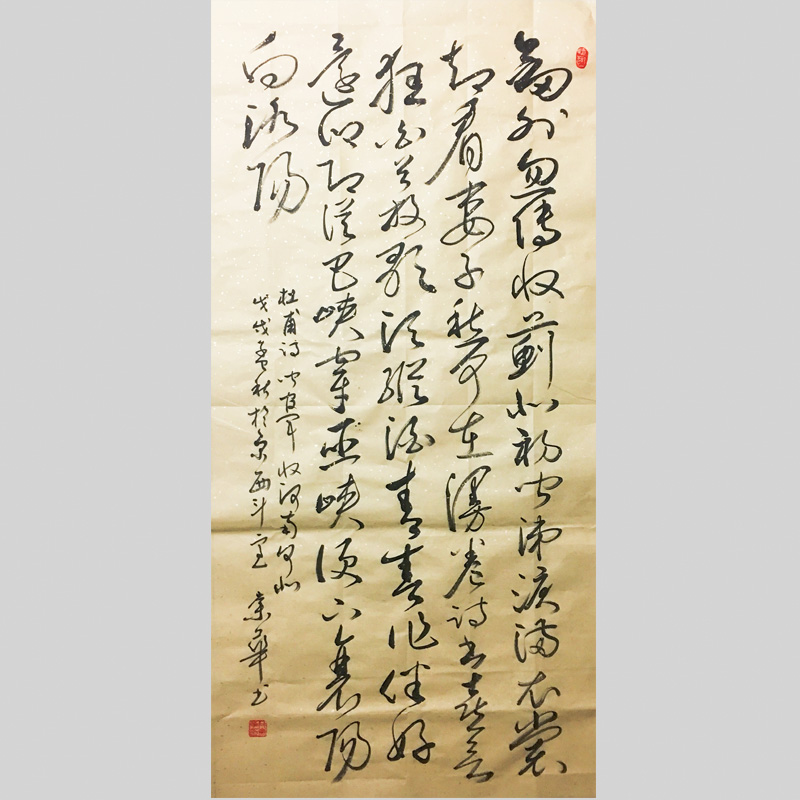 劍外忽傳收薊北初聞涕淚滿衣裳
却看妻子愁何在漫卷詩書喜欲
狂白日放歌須縱酒青春作伴好
還鄉即從巴峽穿巫峽便下襄陽
向洛陽
杜甫詩聞官軍收河南河北
戊戌孟秋於京西斗室 華書